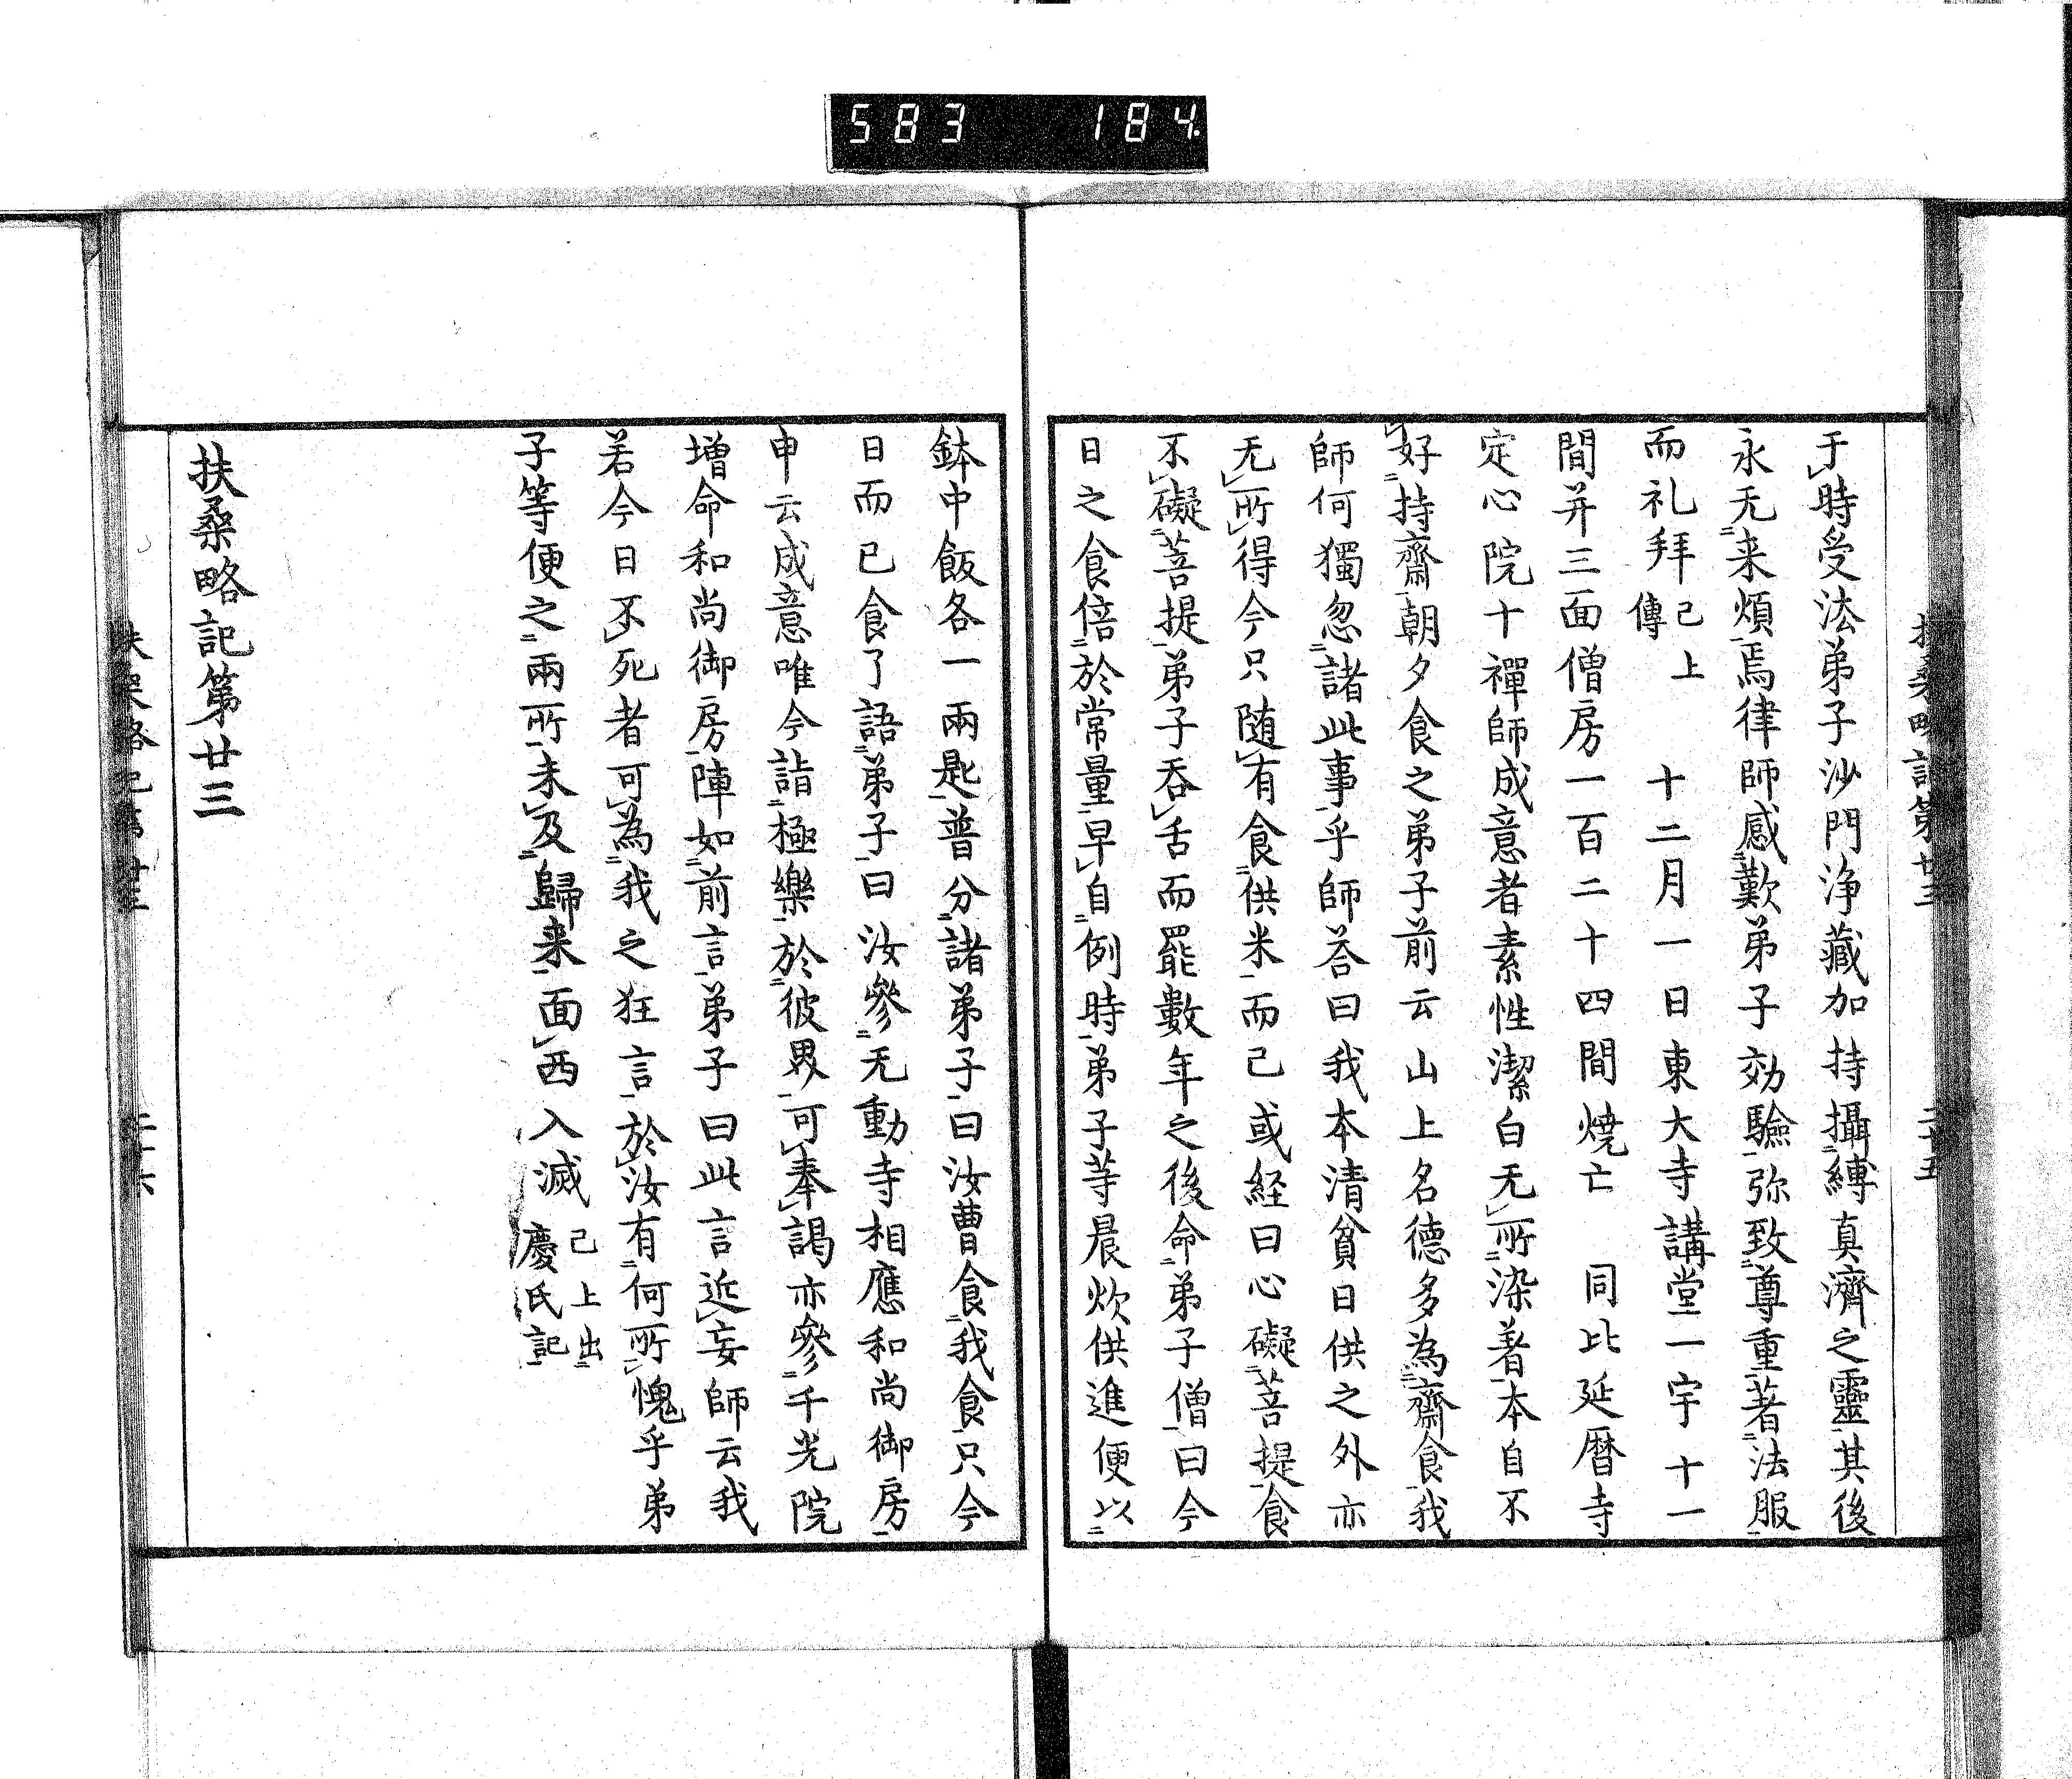 583 184
扶桑略記第廿三 二十五
于時受法弟子沙門浄藏加持攝縛真濟之靈其後
永无来煩焉律師感歎弟子効驗弥致尊重著法服
而礼拜已上傳 十二月一日東大寺講堂一宇十一
間并三面僧房一百二十四間焼亡 同比延暦寺
定心院十禪師成意者素性潔白无所染著本自不
好持齋朝夕食之弟子前云山上名德多為齋食我
師何獨忽諸此事乎師荅曰我本清貧日供之外亦
无所得今只随有食供米而己或経曰心礙菩提食
不礙菩提弟子呑舌而罷數年之後命弟子僧曰今
日之食倍於常量早自例時弟子等晨炊供進便以
鉢中飯各一兩匙普分諸弟子曰汝曹食我食只今
日而已食了語弟子曰汝參无動寺相應和尚御房
申云成意唯今詣極樂於彼界可奉謁亦參千光院
増命和尚御房陣如前言弟子曰此言近妄師云我
若今日不死者可為我之狂言於汝有何所愧乎弟
子等便之兩所未及歸来面西入滅已上出慶氏記
扶桑略記第廿三
扶桑略記第廿三 二十六